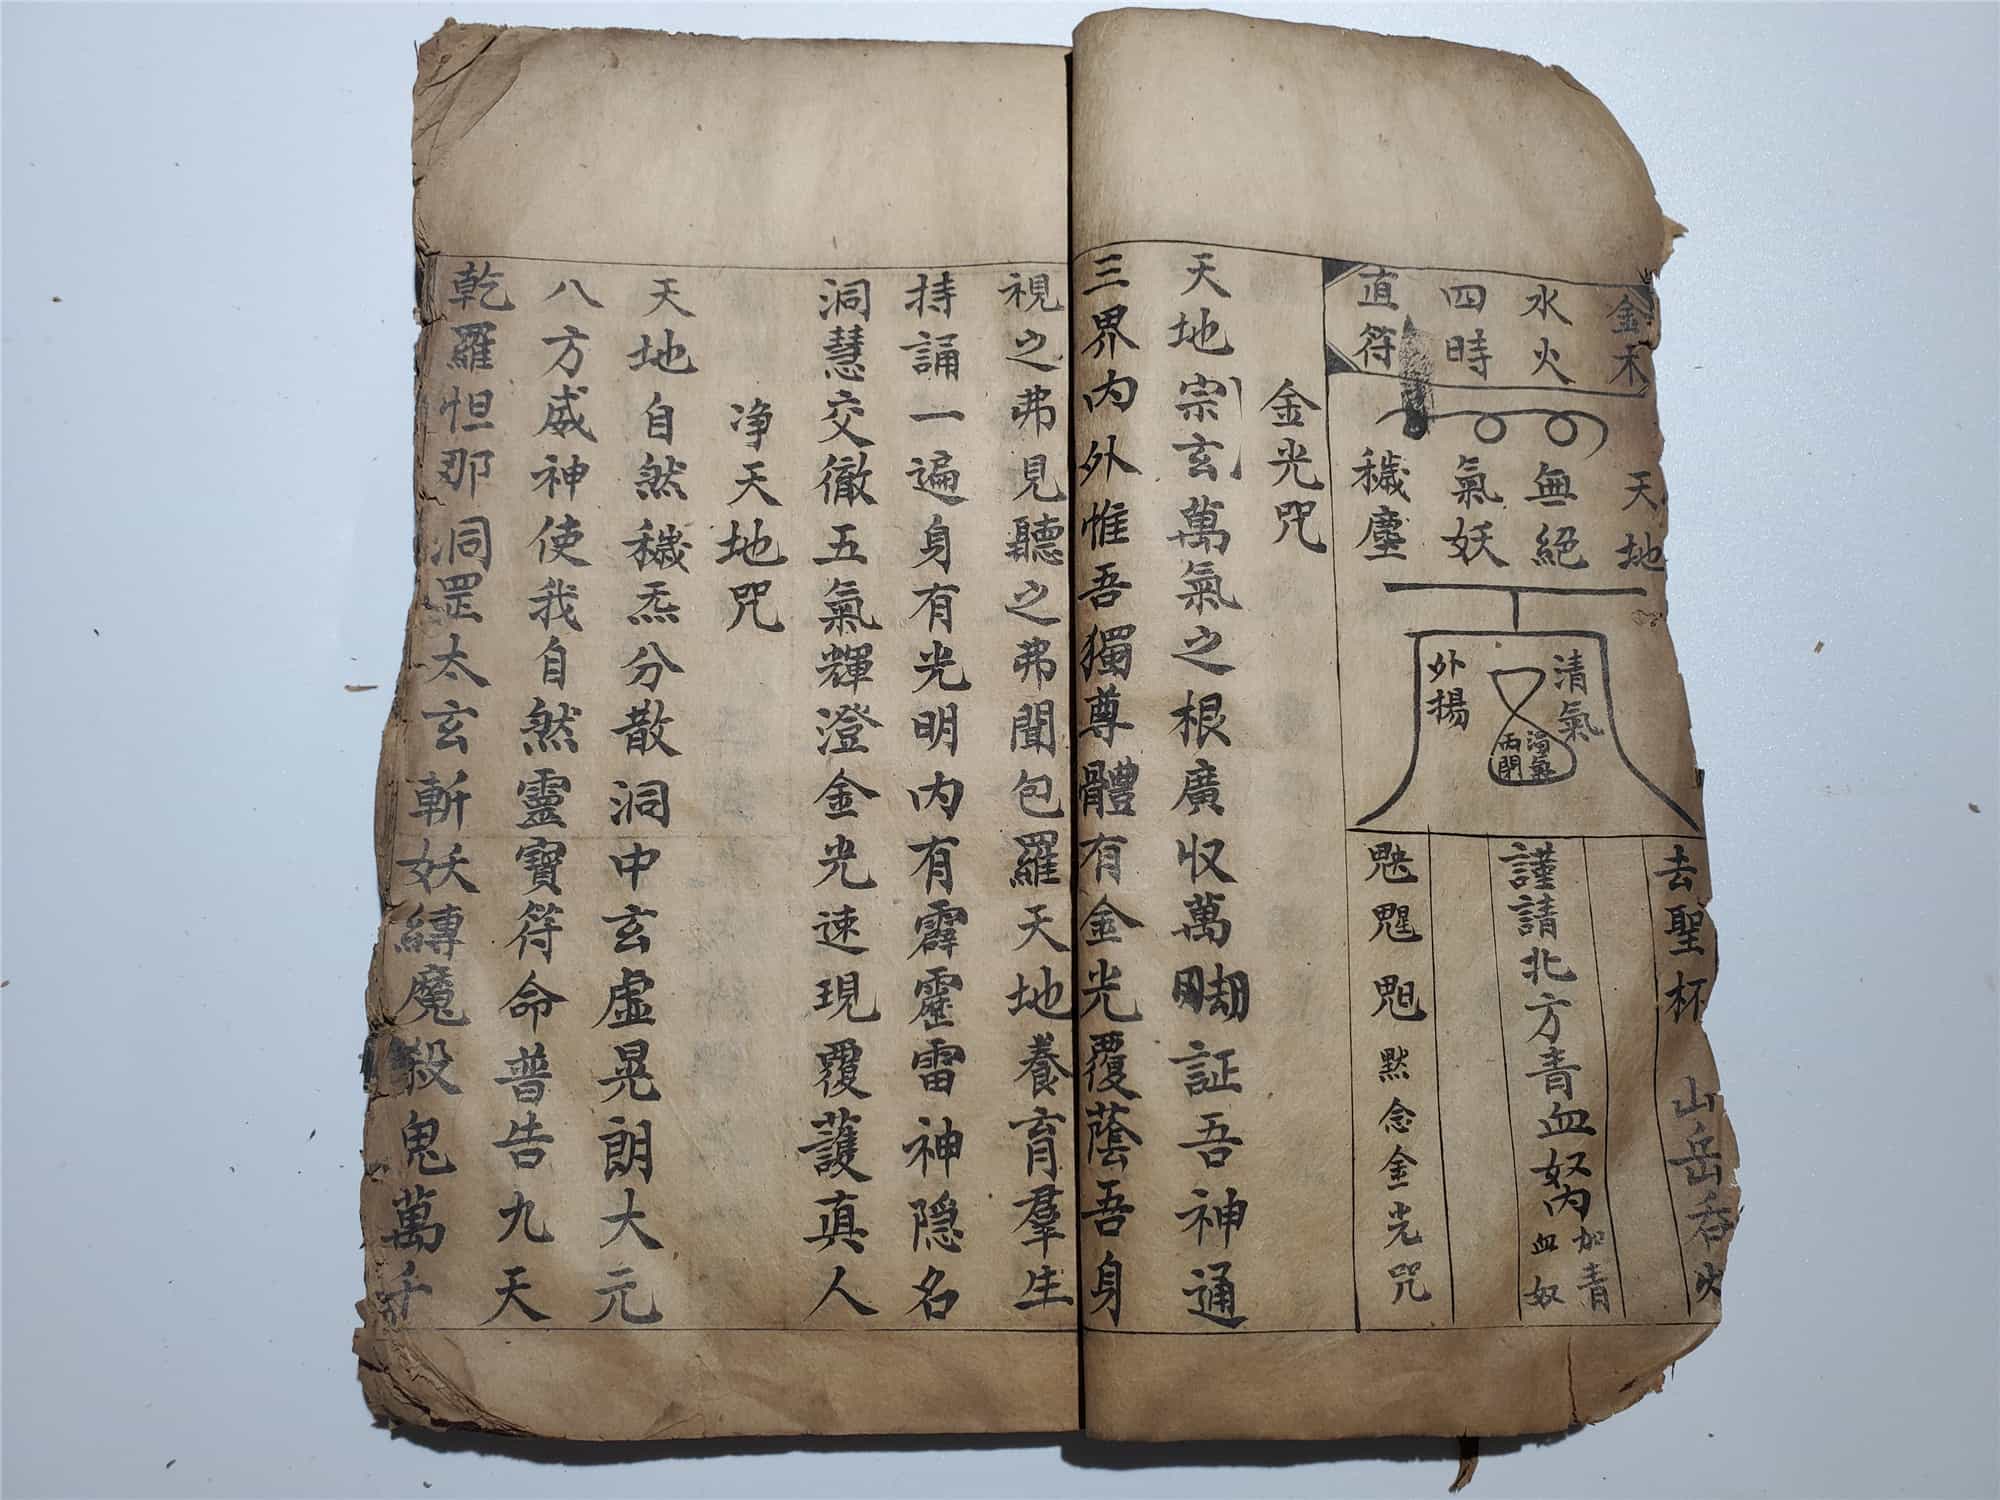 金木
水火
四時
直符
天地
無絕
氣妖
穢塵
清氣
外揚
濁氣
丙閉
去聖杯
山岳吞火
謹請北方青血奴
加青血奴
默念金光咒
金光咒
天地宗玄萬氣之根廣収萬刼証吾神通
三界内外惟吾獨尊體有金光覆蔭吾身
視之弗見聽之弗聞包羅天地養育羣生
持誦一遍身有光明内有霹靂雷神隐名
洞慧交徹五氣輝澄金光速現覆護真人
净天地咒
天地自然穢炁分散洞中玄虛晃朗大元
八方威神使我自然靈寶符命普告九天
乾羅怛那洞罡太玄斬妖縛魔殺鬼萬千